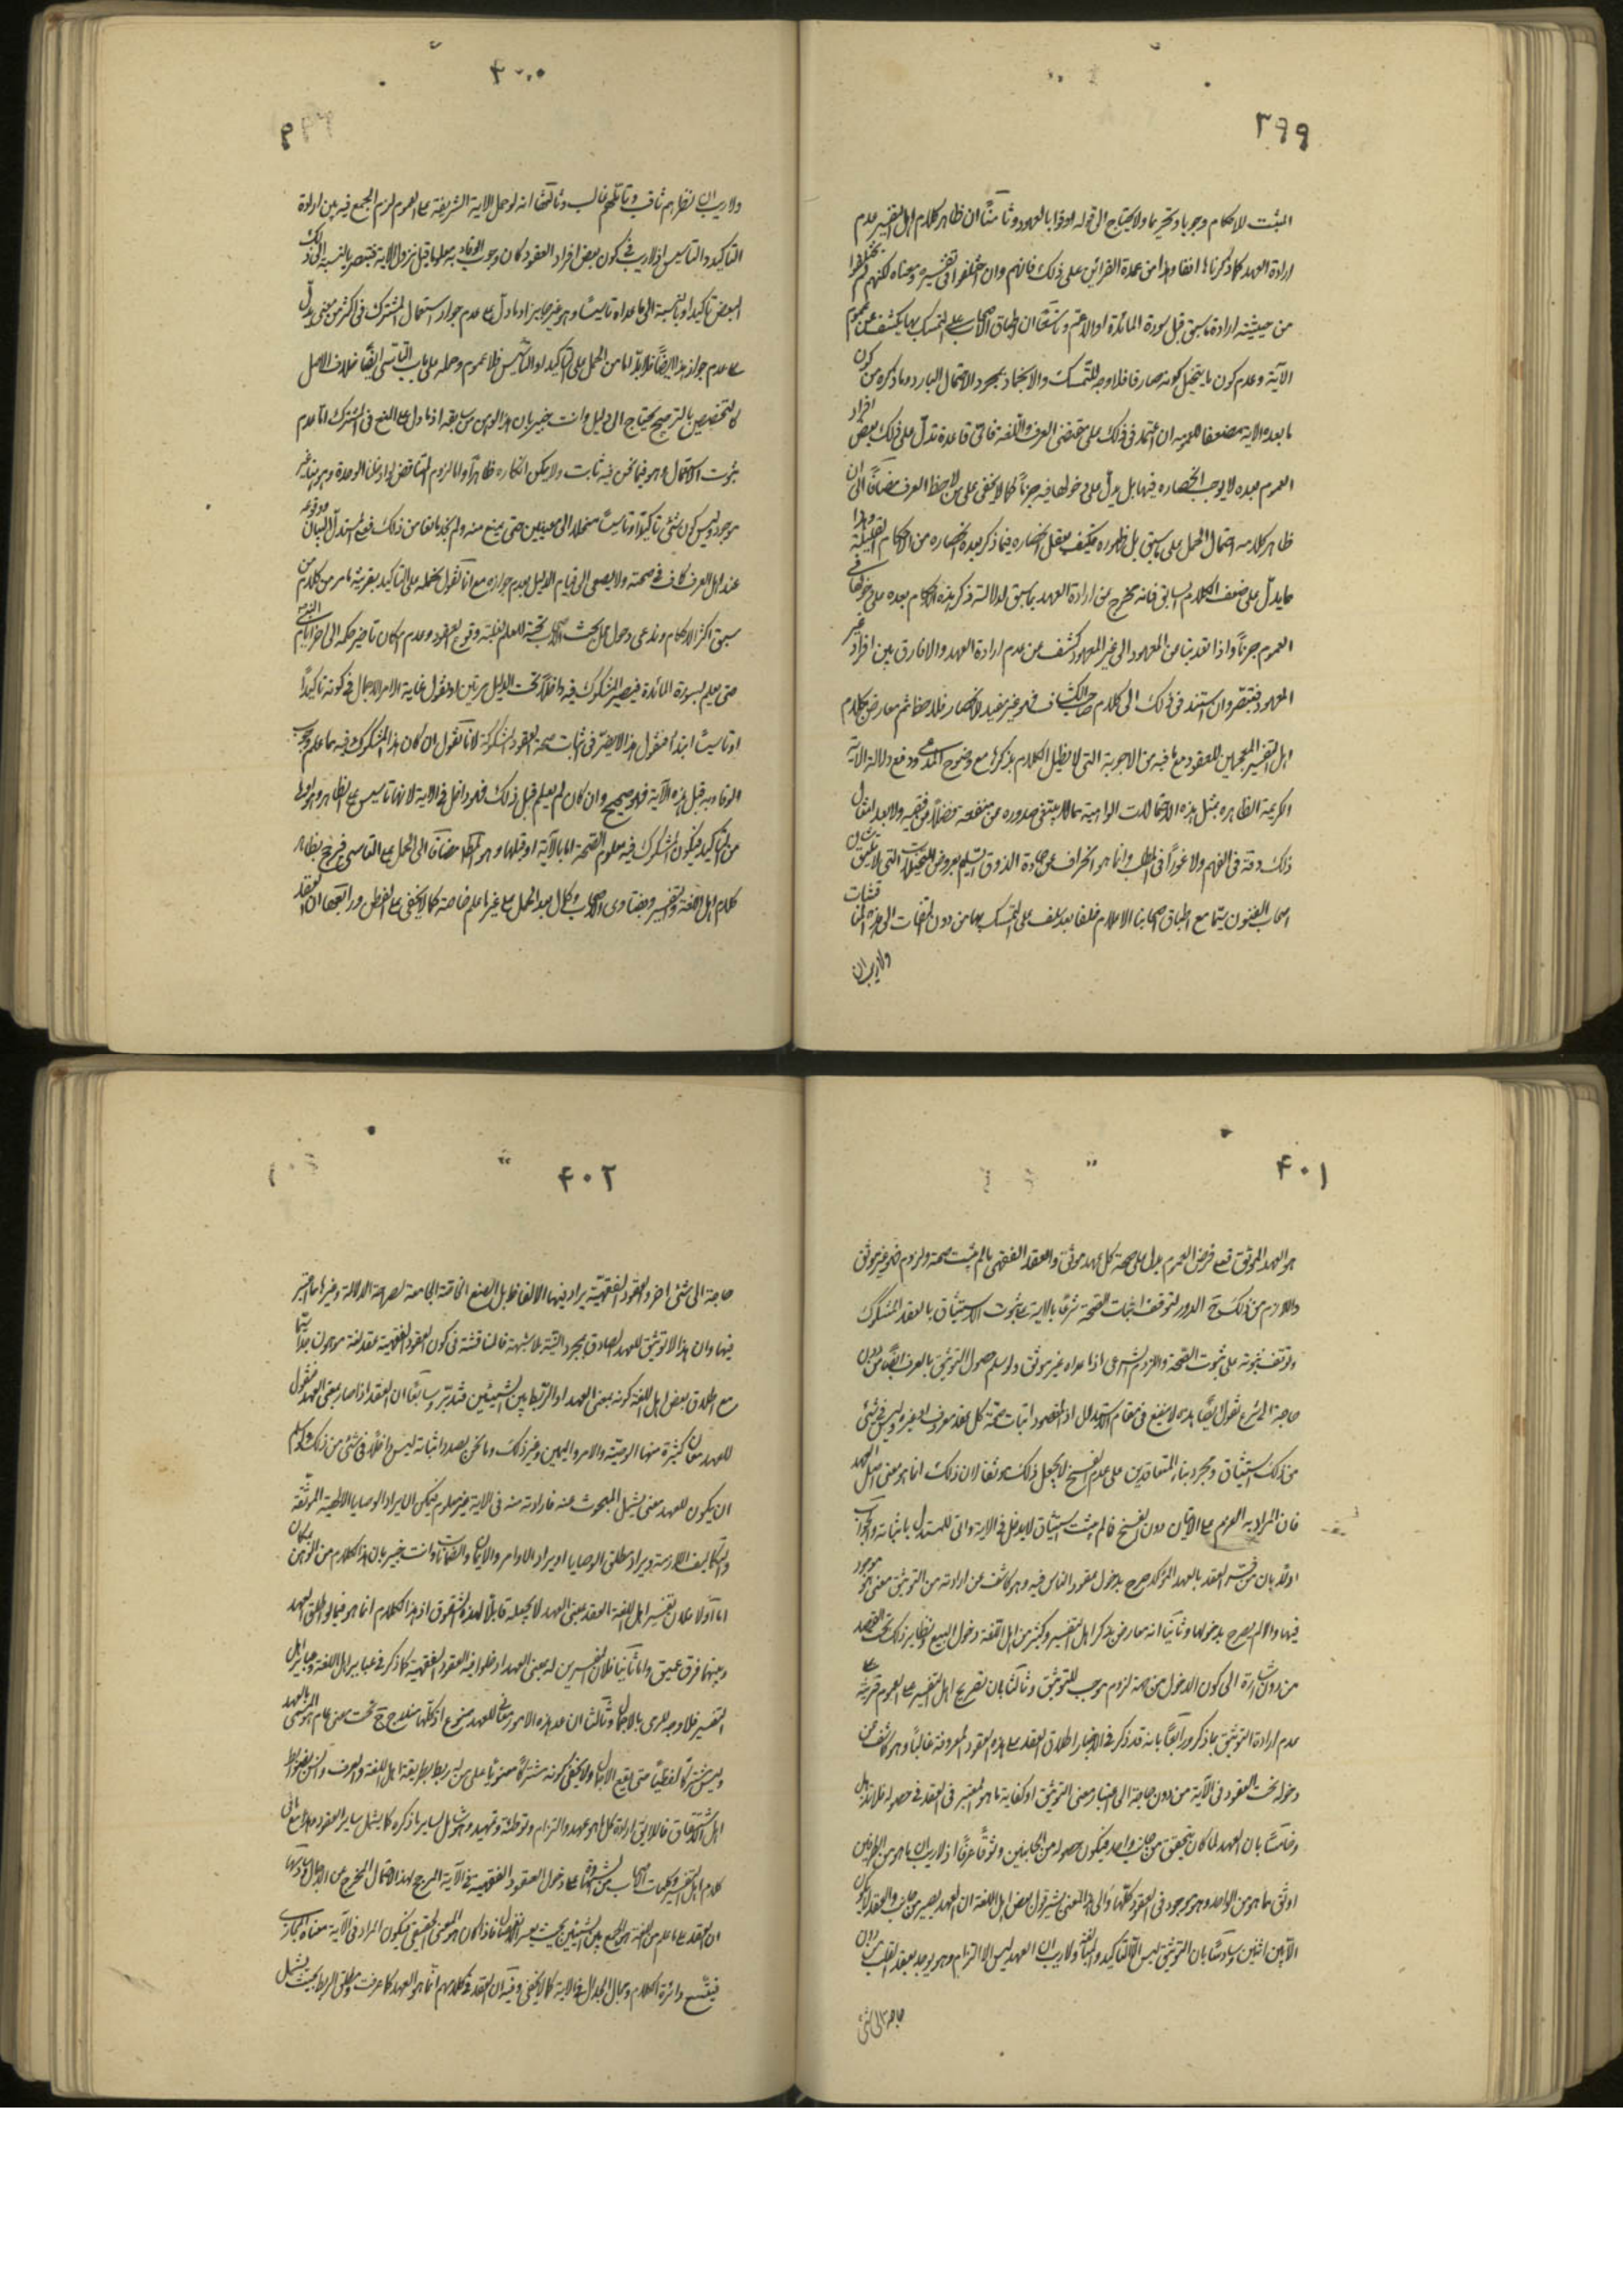 ٣٩٩
المثبت للاحكام وجوبا وتحريما ولا يحتاج الى قوله اوفوا بالعهود وثامنًا ان ظاهر كلام اهل التفسير عدم
ارادة العهد كما ذكرناها انفا وهذا من عمدة القرائن على ذلك فانهم وان اختلفوا فى تفسيره ومعناه لكنهم لم يختلفوا
من حيثية ارادة ما سبق قبل سورة المائدة او الاعم وتاسعًا ان اطباق الاصحاب على التمسك بها يكشف عن عموم
الآية وعدم كون ما يتخيل كونه صارفا فلا وجه للتمسك والاجتهاد بمجرد الاحتمال البارد وما ذكره من كون
ما بعد الاية مضعفا للعموم ان اعتمد فى ذلك على مقتضى العرف واللغة فاى قاعدة تدل على ذلك بعض افراد
العموم بعده لا يوجب انحصاره فيها بل يدل على دخولها فيه جزمًا كما لا يخفى على من لاحظ العرف مضافًا الى ان
ظاهر كلامه احتمال الحمل على ما سبق بل ظهوره فكيف يعقل انحصاره فيما ذكر بعده انحصاره من الاحكام القليلة وهذا
مما يدل على ضعف الكلام السابق فانه يخرج من ارادة العهد بما سبق لدلالة ذكر هذه الاحكام بعده على دخولها فى
العموم جزمًا واذا تعدينا من المعهود الى غير المعهود كشف عن عدم ارادة العهد والا فارق بين افراد غير
المعهود فتبصر وان استند فى ذلك الى كلام صاحب الكشاف فهو غير مفيد للانحصار فلاحظ ثم معارض بكلام
اهل التفسير المعممين للعقود مع ما فيه من الاجوبة التى لا نطيل الكلام بذكرها مع وضوح المدعى ودفع دلالة الاية
الكريمة الظاهره بمثل هذه الاحتمالات الواهية مما لا ينبغى صدوره من متفقه فضلًا عن فقيه ولا يعد امثال
ذلك دقة فى الفهم ولا غورًا فى المطلب وانما هو انحراف عن جادة الذوق السليم بعروض التخيلات التى لا تليق بشان
اصحاب الفنون سيما مع اطباق اصحابنا الاعلام خلفا بعد سلف على التمسك بها من دون التفات الى هذه المناقشات
ولا ريب ان
٤٠٠
ولا ريب ان نظرهم ثاقب وتأملهم غالب وثالثًا انه لو حمل الاية الشريفة على العموم لزم الجمع فيه بين ارادة
التاكيد والتاسيس اذ لا ريب فى كون بعض افراد العقود كان وجوب الوفاء به معلوما قبل نزول الاية فتصير بالنسبة الى ذلك
البعض تاكيدا وبالنسبة الى ما عداه تاسيسًا وهو غير جايز اذ ما دل على عدم جواز استعمال المشترك فى اكثر من معنى يدل
على عدم جواز هذا ايضًا فلا بد اما من الحمل على التاكيد او التاسيس فلا عموم وحمله على باب التاسى ايضًا خلاف الاصل
كالتخصيص بالترجيح يحتاج الى دليل وانت خبير بان هذا اوهن من سابقه اذ ما دل على المنع فى المشترك اما عدم
ثبوت الاستعمال وهو فيما نحن فيه ثابت ولا يمكن انكاره ظاهرًا واما لزوم التناقض لو اخذنا الوحدة وهو هنا غير
موجود وليس كون شئ تاكيدًا وتاسيسًا منحلا الى معنيين حتى يمنع منه ولم نجد مانعا من ذلك فعلى المستدل البيان ووقوعه
عند اهل العرف كاف فى صحته ولا يصغى الى قيام الدليل بعدم جوازه مع انا نقول نحمله على التاكيد بقرينة ما مر من كلام من
سبق اكثر الاحكام وندعى دخول محل بحث الاصحاب تحته للعلم بغلبة وقوع العقود وعدم امكان تاخير حكمه الى اخر ايام النبى
حتى يعلم بسورة المائدة فيصير المشكوك فيه داخلًا تحت الدليل مرتين او نقول غاية الامر الاجمال فى كونه تاكيدًا
او تاسيسًا ابتداءً فنقول هذا لا يضر فى اثبات صحة العقود المشكوكة لانا نقول ان كان هذا المشكوك فيه مما علم وجوب
الوفاء به قبل هذه الآية فهو صحيح وان كان لم يعلم قبل ذلك فهو داخل فى الاية لانها تاسيس على الظاهر وهو اولى
من التاكيد فيكون المشكوك فيه معلوم الصحة اما بالآية او قبلها وهو المطلوب مضافًا الى الحمل على التاسى فرع ظاهر
كلام اهل اللغة والتفسير وفتاوى الاصحاب وكمال بعد الحمل على غير ما علم خاصة كما لا يخفى على الفطن ورابعها ان العقد
٤٠١
هو العهد الموثق فعلى فرض العموم يدل على صحة كل عهد موثق والعقد الفقهى ما لم يثبت صحته ولزومه فهو غير موثق
واللازم من ذلك ح الدور لتوقف اثبات الصحة شرعًا بالاية على ثبوت الاستيثاق بالعقد المشكوك
وتوقف ثبوته على ثبوت الصحة واللزوم الشرعى اذ ما عداه غير موثق ولو سلم حصول التوثيق بالعرف ايضًا من دون
حاجة الى الشرع نقول ايضًا هذا لا ينفع فى مقام الاستدلال اذ المقصود اثبات صحة كل عقد معروف او غيره وليس فى شئ
من ذلك استيثاق ومجرد بناء المتعاقدين على عدم الفسخ لا يجعل ذلك موثقا لان ذلك انما هو معنى اصل العهد
فان المراد به العزم على الاتيان دون الفسخ فما لم يثبت استيثاق لا يدخل فى الاية وانى للمستدل باثباته والجواب
اولًا بان من فسر العقد بالعهد المؤكد صرح بدخول عقود الناس فيه وهو كاشف عن ارادته من التوثيق معنى هو موجود
فيها والا لم يصرح بدخولها وثانيًا انه معارض بذكر اهل التفسير وكثير من اهل اللغة دخول البيع ونظاير ذلك تحت العقد
من دون اشارة الى كون الدخول من جهة لزوم موجب للتوثيق وثالثًا بان تصريح اهل التفسير على العموم قرينة على
عدم ارادة التوثيق بما ذكر ورابعًا بانه قد ذكر فى الاخبار اطلاق العقد على هذه العقود المعروفة غالبًا وهو كاشف عن
دخوله تحت العقود فى الآية من دون حاجة الى اعتبار معنى التوثيق او كفاية ما هو المعتبر فى العقد فى حصوله
وخامسًا بان العهد لما كان يتحقق من جانب واحد فيكون حصوله من الجانبين وثوقًا عرفًا اذ لا ريب ان ما هو من الطرفين
اوثق مما هو من الواحد وهو موجود فى العقود كلها والى هذا المعنى يشير قول بعض اهل اللغة ان العهد يصير من جانب والعقد لا يكون
الا بين اثنين وسادسًا بان التوثيق ليس الا التاكيد والشد ولا ريب ان العهد ليس الا التزام وهو يوجد بعقد القلب من دون
حاجة الى شئ
٤٠٢
حاجة الى شئ اخر والعقود الفقهية يراد فيها الالفاظ بل الصيغ الخاصة الجامعة لصراحة الدلالة وغيرها مما اعتبر
فيها وان هذا الا توثيق للعهد الصادق بمجرد النية بلا شبهة فالمناقشة فى كون العقود الفقهية عقد لغة موهون جدا سيما
مع اطلاق بعض اهل اللغة كونه بمعنى العهد او الربط بين الشيئين فتدبر وسابعًا ان العقد اذا صار بمعنى العهد فنقول
للعهد معان كثيرة منها الوصية والامر واليمين وغير ذلك وما نحن بصدد اثباته ليس داخلًا فى شئ من ذلك ولو سلم
ان يكون للعهد معنى يشمل المبحوث عنه فارادته منه فى الاية غير معلوم فيمكن ان يراد الوصايا الالهية الموثقة
والتكاليف اللازمة ويراد مطلق الوصايا او يراد الاوامر والايمان والضمانات وانت خبير بان هذا الكلام من الوهن بمكان
اما اولا فلان تفسير اهل اللغة العقد بمعنى العهد لا يجعله قابلًا لهذه الشقوق اذ هذا الكلام انما هو فيما لو اطلق العهد
وبينهما فرق عميق واما ثانيا فلان المفسرين له بمعنى العهد ادخلوا فيه العقود الفقهية كما ذكر فى عباير اهل اللغة وعباير اهل
التفسير فلا وجه للرمى بالاجمال وثالثا ان عد هذه الامور معانى للعهد ممنوع اذ كلها مندرج تحت معنى عام هو المسمى بالعهد
وليس مشتركًا لفظيًا حتى يقع الاجمال ولا يخفى كونه مشتركًا معنويًا على من له ربط بطريقة اهل اللغة والعرف
اهل الاشتقاق فاللايق ارادة كل ما هو عهد والتزام وتوطئة وتمهيد وهو شامل لسايره ما ذكره كما يشمل ساير العقود
كلام اهل التفسير وكلمات الاصحاب على دخول العقود الفقهية فى الآية المرجح لهذا الاحتمال المخرج عن الاجمال
ان العقد على ما علم من اللغة هو الجمع بين الشيئين بحيث يعسر الانفصال فاذا كان هو المعنى الحقيقى فيكون المراد فى الآية معناه المجازى
فيتسع دائرة الكلام ومجال الجدال فى الاية كما لا يخفى وفيه ان العقد فى كلامهم انما هو العهد كما عرفت ومطلق الربط بحيث يشمل